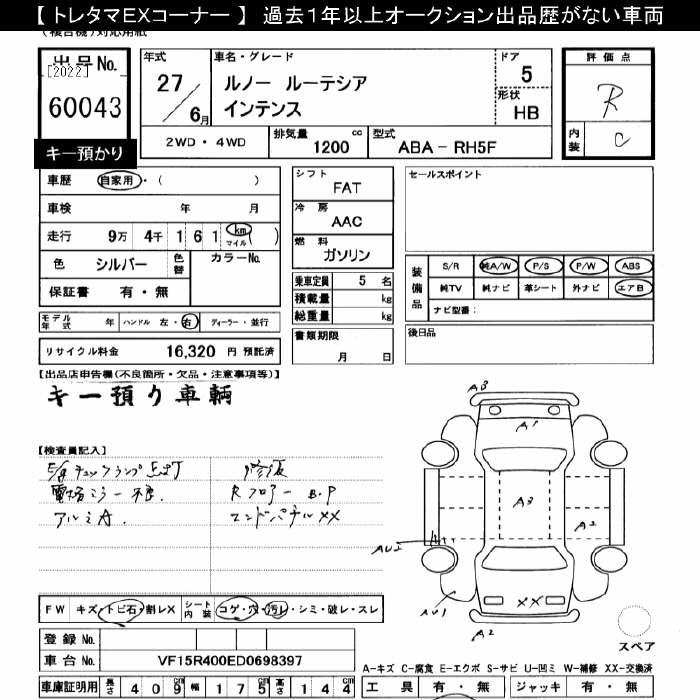 【 トレタマEXコーナー 】 過去1年以上オークション出品歴がない車両
(複合機)対応用紙
出品No. [2022]
60043
キー預かり
年式 27/6月
車名・グレード
ルノー ルーテシア
インテンス
ドア 5
形状 HB
2WD・4WD
排気量 1200 cc
型式 ABA-RH5F
評価点
R
内装 C
車歴 自家用・( )
車検 年 月
走行 9万 4千 1 6 1 km マイル ( )
色 シルバー 色替 カラーNo.
保証書 有・無
シフト FAT
冷房 AAC
燃料 ガソリン
乗車定員 5 名
積載量 kg
総重量 kg
書類期限 月 日
セールスポイント
装備品 S/R 純A/W P/S P/W ABS
純TV 純ナビ 革シート 外ナビ エアB
ナビ型番:
後日品
モデル年式 年 ハンドル 左・右 ディーラー・並行
リサイクル料金 16,320 円 預託済
【出品店申告欄(不良箇所・欠品・注意事項等)】
キー預り車輌
【検査員記入】
E/g チェックランプ点灯
電格ミラー不良
アルミA.
修復
Rフロアー B.P
エンドパネルXX
A3
A1
A3
A2
AU2
A1
AU1
XX
A2
スペア
FW キズ・トビ石・割レX シート内装 コゲ・穴・汚レ・シミ・破レ・スレ
登録 No.
車台 No. VF15R400ED0698397
A-キズ C-腐食 E-エクボ S-サビ U-凹ミ W-補修 XX-交換済
車庫証明用 長さ 409cm 幅 175cm 高さ 144cm
工具 有・無 ジャッキ 有・無